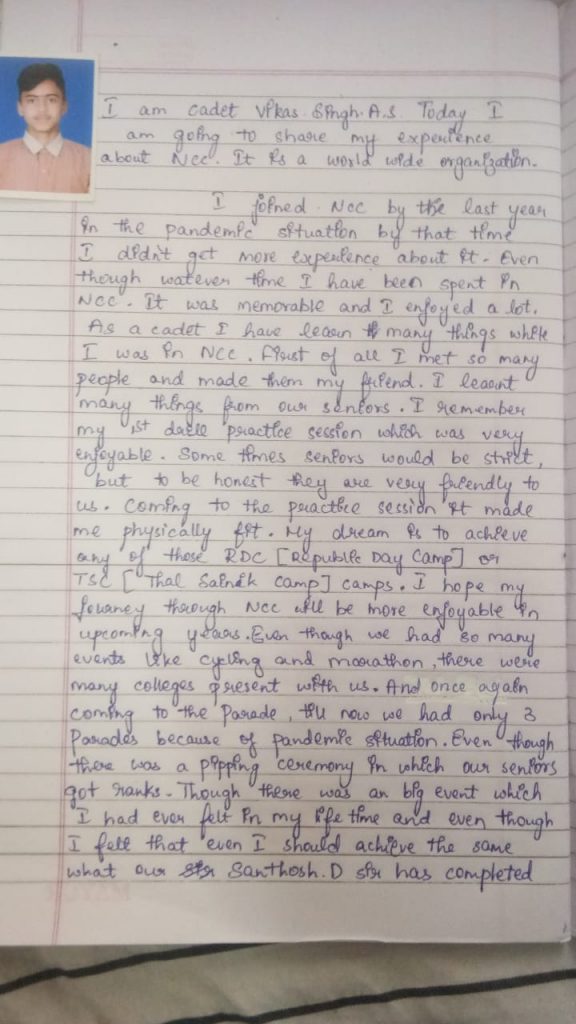 I am cadet Vikas Singh. A.S. Today I
am going to share my experience
about Ncc. It is a world wide organization.
I joined Ncc by the last year
in the pandemic situation by that time
I didn't get more experience about it. Even
though watever time I have been spent in
NCC. It was memorable and I enjoyed a lot.
As a cadet I have learn many things while
I was in NCC. First of all I met so many
people and made them my friend. I learnt
many things from our seniors. I remember
my 1st drill practice session which was very
enjoyable. Some times seniors would be strict,
but to be honest they are very friendly to
us. Coming to the practice session it made
me physically fit. My dream is to achieve
any of those RDC [Republic Day Camp] or
TSC [Thal Sainik Camp] camps. I hope my
journey through Ncc will be more enjoyable in
upcoming years. Even though we had so many
events like cycling and marathon, there were
many colleges present with us. And once again
coming to the Parade, till now we had only 3
Parades because of pandemic situation. Even though
there was a pipping ceremony in which our seniors
got ranks. Though there was an big event which
I had ever felt in my life time and even though
I felt that even I should achieve the same
what our Santhosh. D sir has completed